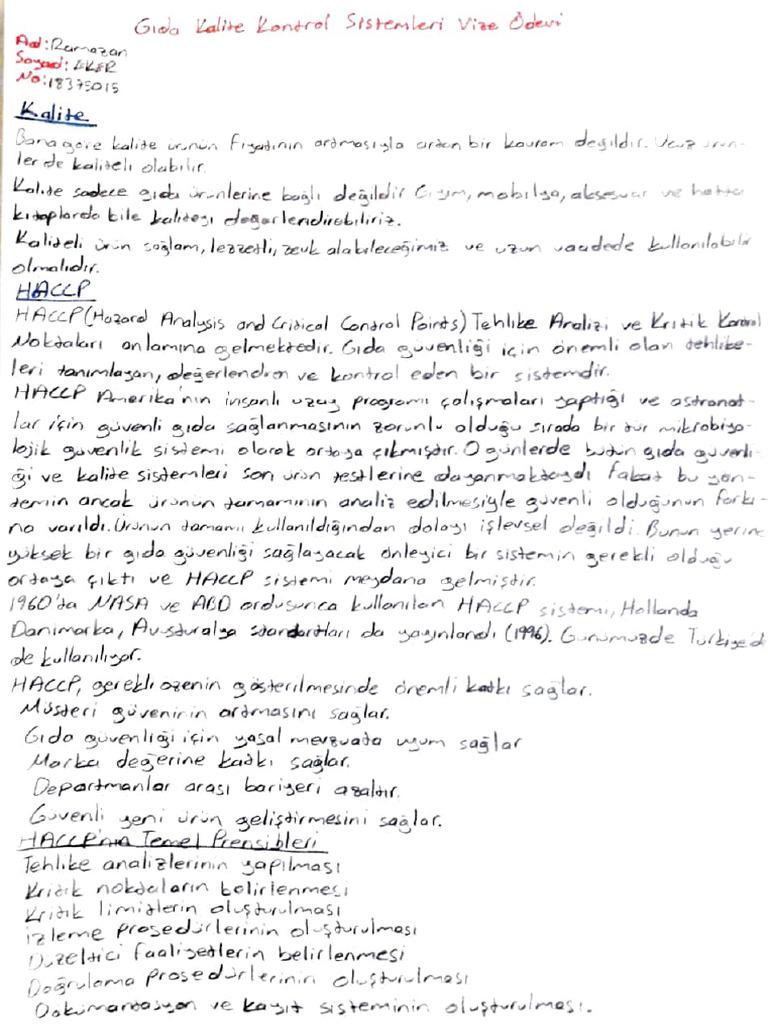 Gıda Kalite Kontrol Sistemleri Vize Ödevi
Ad: Ramazan
Soyad: EKER
No: 18375015
Kalite
Bana göre kalite ürünün fiyatının artmasıyla artan bir kavram değildir. Ucuz ürün-
ler de kaliteli olabilir.
Kalite sadece gıda ürünlerine bağlı değildir Giyim, mobilya, aksesuar ve hatta
kitaplarda bile kaliteyi değerlendirebiliriz.
Kaliteli ürün sağlam, lezzetli, zevk alabileceğimiz ve uzun vaadede kullanılabilir
olmalıdır.
HACCP
HACCP (Hazard Analysis and Critical Control Points) Tehlike Analizi ve Kritik Kontrol
Noktaları anlamına gelmektedir. Gıda güvenliği için önemli olan tehlike-
leri tanımlayan, değerlendiren ve kontrol eden bir sistemdir.
HACCP Amerika'nın insanlı uzay programı çalışmaları yaptığı ve astronot-
lar için güvenli gıda sağlanmasının zorunlu olduğu sırada bir tür mikrobiyo-
lojik güvenlik sistemi olarak ortaya çıkmıştır. O günlerde bütün gıda güvenli-
ği ve kalite sistemleri son ürün testlerine dayanmaktaydı fakat bu yön-
temin ancak ürünün tamamının analiz edilmesiyle güvenli olduğunun farkı-
na varıldı. Ürünün tamamı kullanıldığından dolayı işlevsel değildi. Bunun yerine
yüksek bir gıda güvenliği sağlayacak önleyici bir sistemin gerekli olduğu
ortaya çıktı ve HACCP sistemi meydana gelmiştir.
1960'ta NASA ve ABD ordusunca kullanılan HACCP sistemi, Hollanda
Danimarka, Avusturalya standartları da yayınlandı (1996). Günümüzde Türkiye'de
de kullanılıyor.
HACCP, gerekli özenin gösterilmesinde önemli katkı sağlar.
Müşteri güveninin artmasını sağlar.
Gıda güvenliği için yasal mevzuata uyum sağlar
Marka değerine katkı sağlar.
Departmanlar arası bariyeri azaltır.
Güvenli yeni ürün geliştirmesini sağlar.
HACCP'nin Temel Prensibleri
Tehlike analizlerinin yapılması
Kritik noktaların belirlenmesi
Kritik limitlerin oluşturulması
İzleme prosedürlerinin oluşturulması
Düzeltici faaliyetlerin belirlenmesi
Doğrulama prosedürlerinin oluşturulması
Dokümantasyon ve kayıt sisteminin oluşturulması.